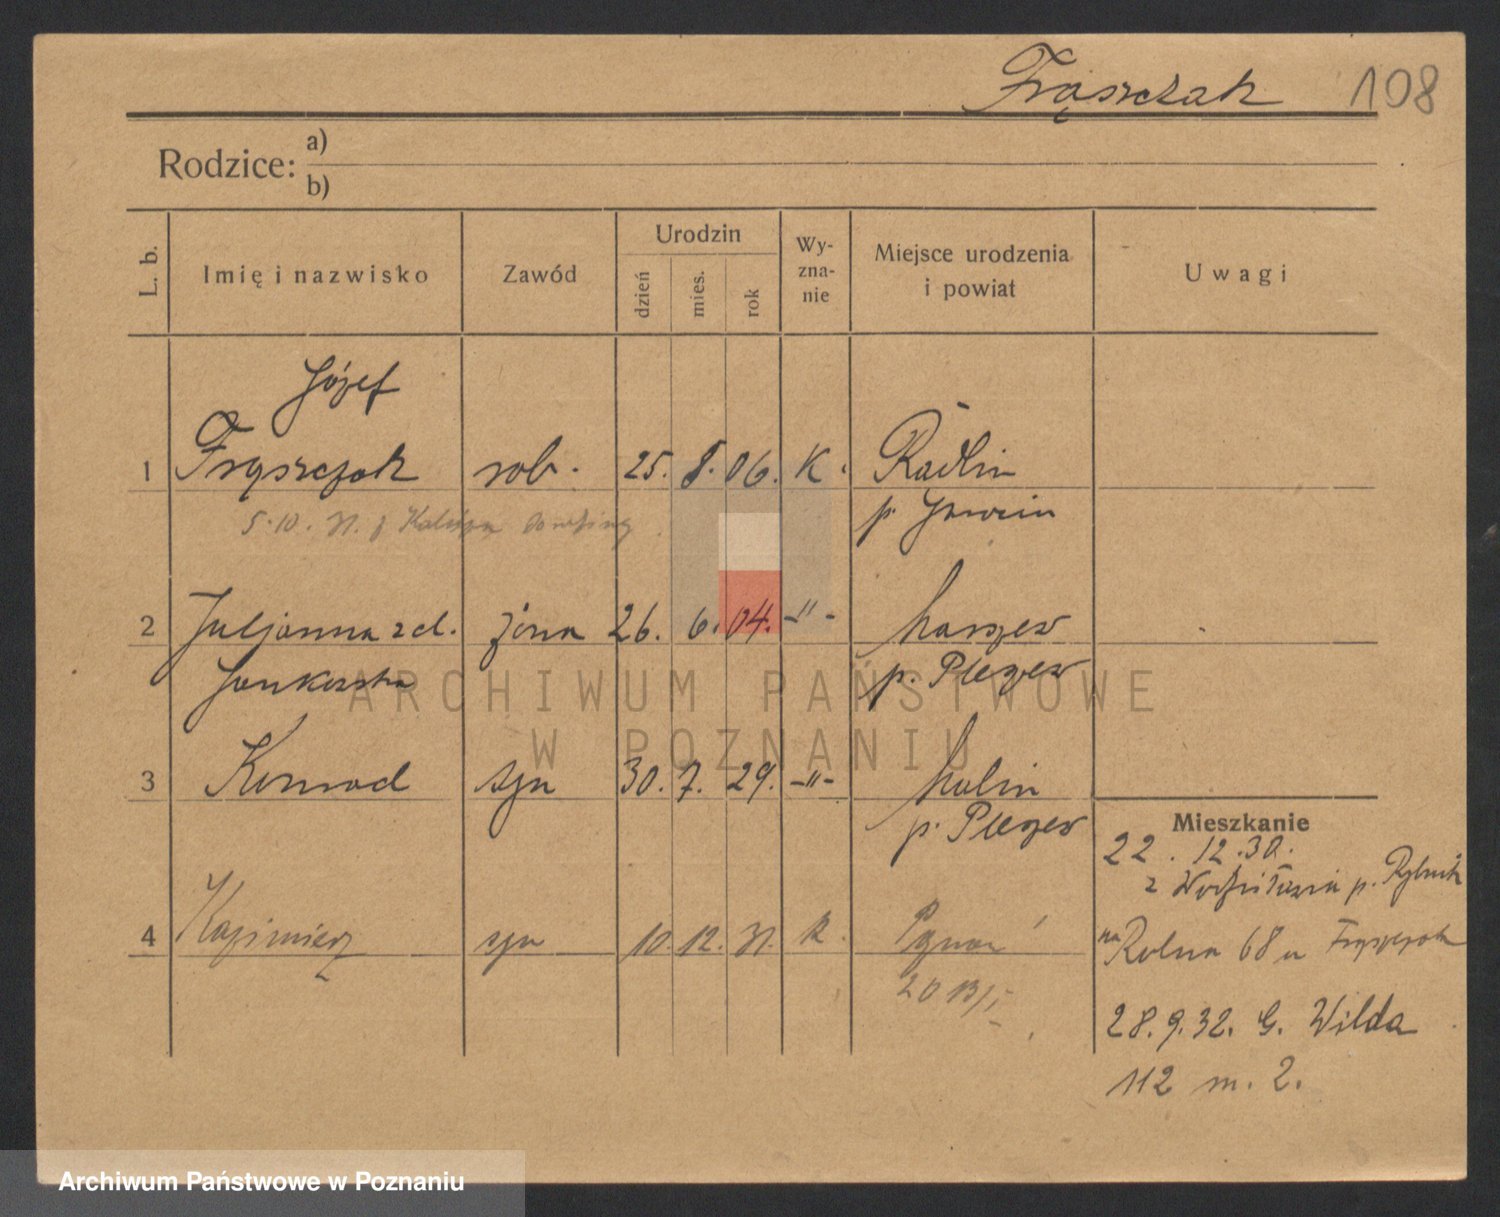 Frąszczak 108
Rodzice: a)
b)
L. b. Imię i nazwisko Zawód Urodzin dzień mies. rok Wy-zna-nie Miejsce urodzenia i powiat Uwagi
Józef
1 Frąszczak rob. 25. 8. 06. K. Radlin
5.10. 31. z p. Jarocin
2 Juljanna zd. żona 26. 6. 04. -"- Marszew
Jankowska p. Pleszew
ARCHIWUM PAŃSTWOWE
W POZNANIU
3 Konrad syn 30. 7. 29. -"- Malin
p. Pleszew
Mieszkanie
22. 12. 30.
z p. Rybnik
4 Kazimierz syn 10. 12. 31. K. Poznań
na Rolna 68 u Frąszczak
28. 9. 32. G. Wilda
112 m. 2.
Archiwum Państwowe w Poznaniu